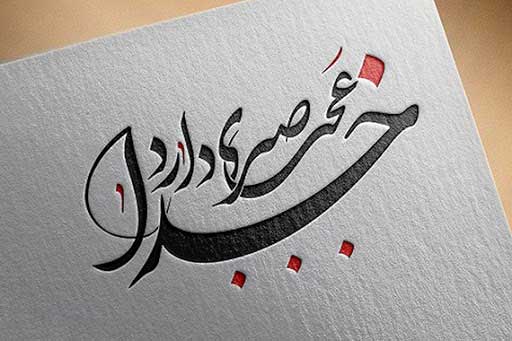 عجب صبری خدا دارد